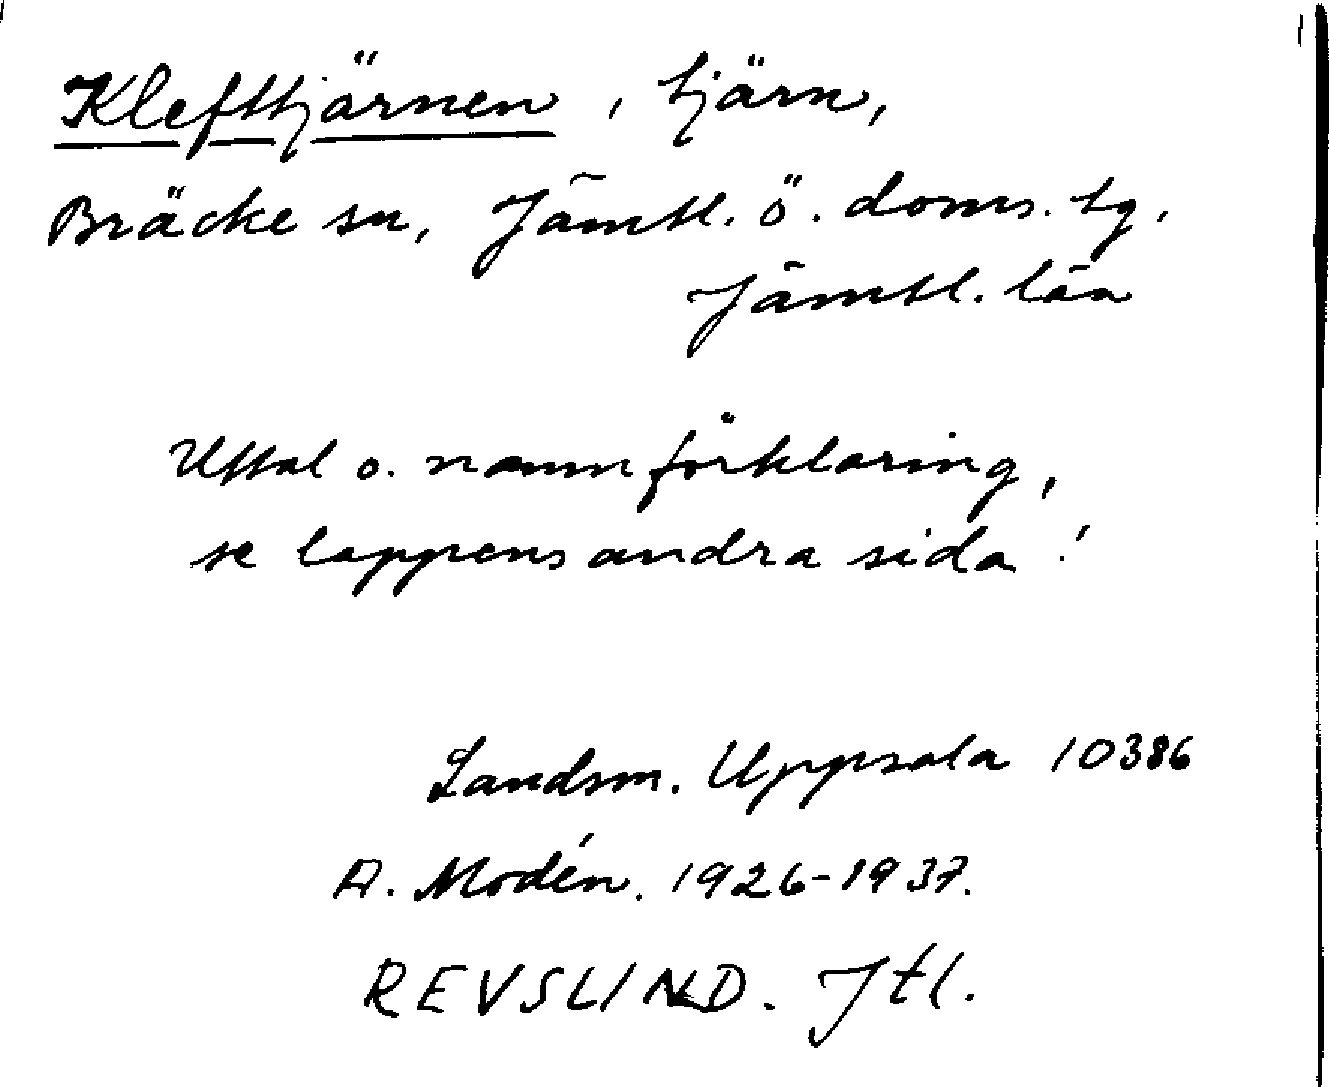 Klefttjärnen, tjärn,
Bräcke sn, Jämtl. ö. doms. tg.
Jämtl. län
Uttal o. namnförklaring,
se lappens andra sida!
Landsm. Uppsala 10386
A. Modén. 1926-1937.
REVSUND. Jtl.